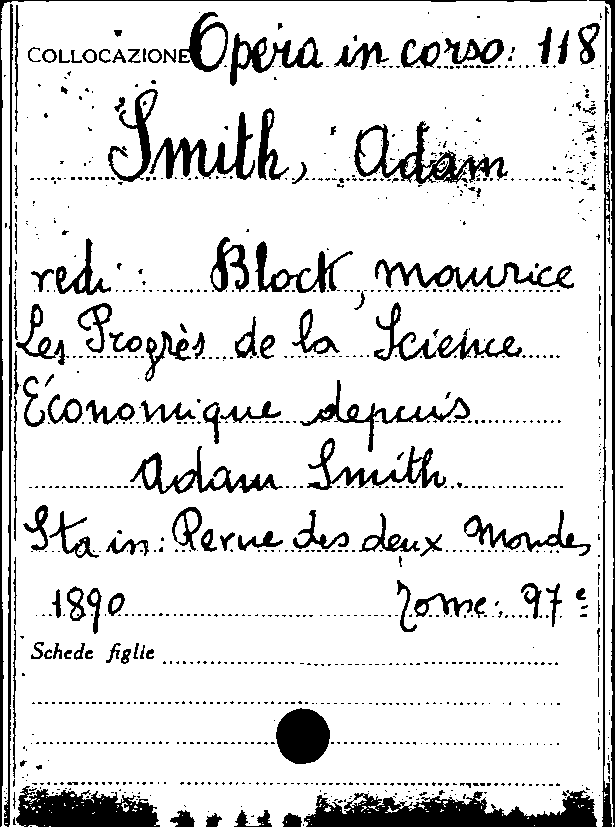 COLLOCAZIONE Opera in corso: 118
Smith, Adam
vedi: Block, Maurice
Les Progrès de la Science
Économique depuis
Adam Smith.
Sta in: Revue des deux Mondes
1890 Tome: 97e
Schede figlie